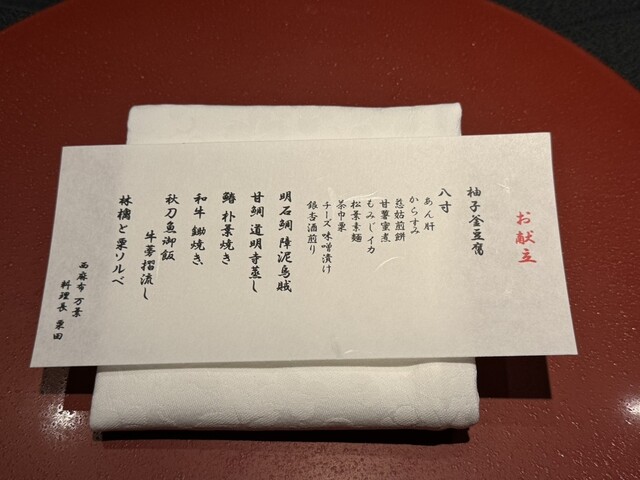 お献立
柚子釜豆腐
八寸
あん肝
からすみ
慈姑煎餅
甘薯蜜煮
もみじイカ
松葉素麺
茶巾栗
チーズ味噌漬け
銀杏酒煎り
明石鯛 障泥烏賊
甘鯛 道明寺蒸し
鰆 朴葉焼き
和牛 鋤焼き
秋刀魚御飯
牛蒡摺流し
林檎と栗ソルベ
西麻布 万葉
料理長 栗田